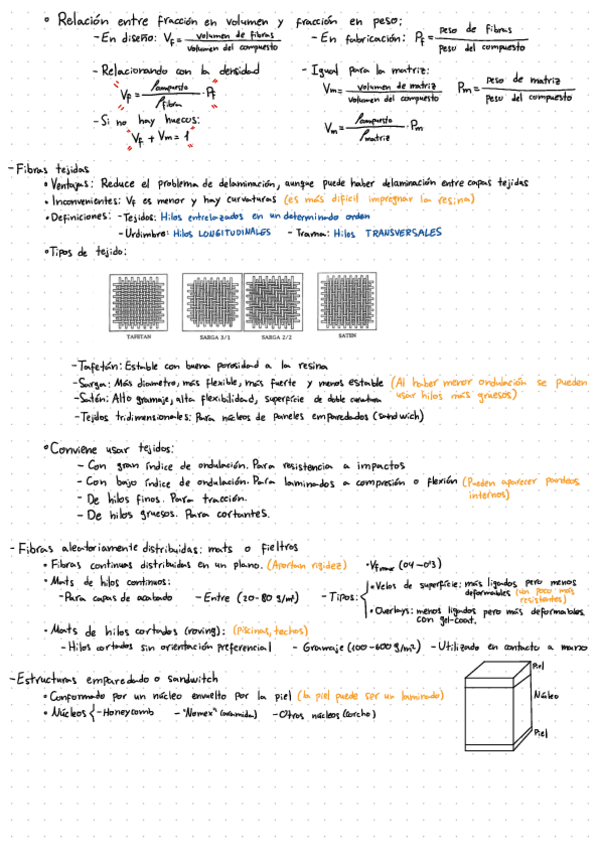 • Relación entre fracción en volumen y fracción en peso:
- En diseño: Vf = volumen de fibras / volumen del compuesto - En fabricación: Pf = peso de fibras / peso del compuesto
- Relacionando con la densidad - Igual para la matriz:
Vf = ρcompuesto / ρfibra · Pf Vm = volumen de matriz / volumen del compuesto Pm = peso de matriz / peso del compuesto
- Si no hay huecos: Vm = ρcompuesto / ρmatriz · Pm
Vf + Vm = 1
- Fibras tejidas
• Ventajas: Reduce el problema de delaminación, aunque puede haber delaminación entre capas tejidas
• Inconvenientes: Vf es menor y hay curvaturas (es más difícil impregnar la resina)
• Definiciones: - Tejidos: Hilos entrelazados en un determinado orden
- Urdimbre: Hilos LONGITUDINALES - Trama: Hilos TRANSVERSALES
• Tipos de tejido:
TAFETAN SARGA 3/1 SARGA 2/2 SATEN
- Tafetán: Estable con buena porosidad a la resina
- Sarga: Más diametro, más flexible, más fuerte y menos estable (Al haber menor ondulación se pueden
usar hilos más gruesos)
- Satén: Alto gramaje, alta flexibilidad, superficie de doble curvatura
- Tejidos tridimensionales: Para núcleos de paneles emparedados (sandwich)
• Conviene usar tejidos:
- Con gran índice de ondulación. Para resistencia a impactos
- Con bajo índice de ondulación. Para laminados a compresión o flexión (Pueden aparecer pandeos
internos)
- De hilos finos. Para tracción.
- De hilos gruesos. Para cortantes.
- Fibras aleatoriamente distribuidas: mats o fieltros
• Fibras continuas distribuidas en un plano. (Aportan rigidez) • Vfmax (0'1-0'3)
• Mats de hilos continuos:
- Para capas de acabado - Entre (20-80 g/m²) - Tipos: { • Velos de superficie: más ligados pero menos
deformables (un poco más
resistentes)
• Overlays: menos ligados pero más deformables
con gel-coat.
• Mats de hilos cortados (roving): (piscinas, techos)
- Hilos cortados sin orientación preferencial - Gramaje (100-600 g/m²) - Utilizado en contacto a mano
- Estructuras emparedado o sandwitch
• Conformado por un núcleo envuelto por la piel (la piel puede ser un laminado)
• Núcleos { - Honeycomb - "Nomex" (aramida) - Otros núcleos (corcho)
Piel
Núcleo
Piel